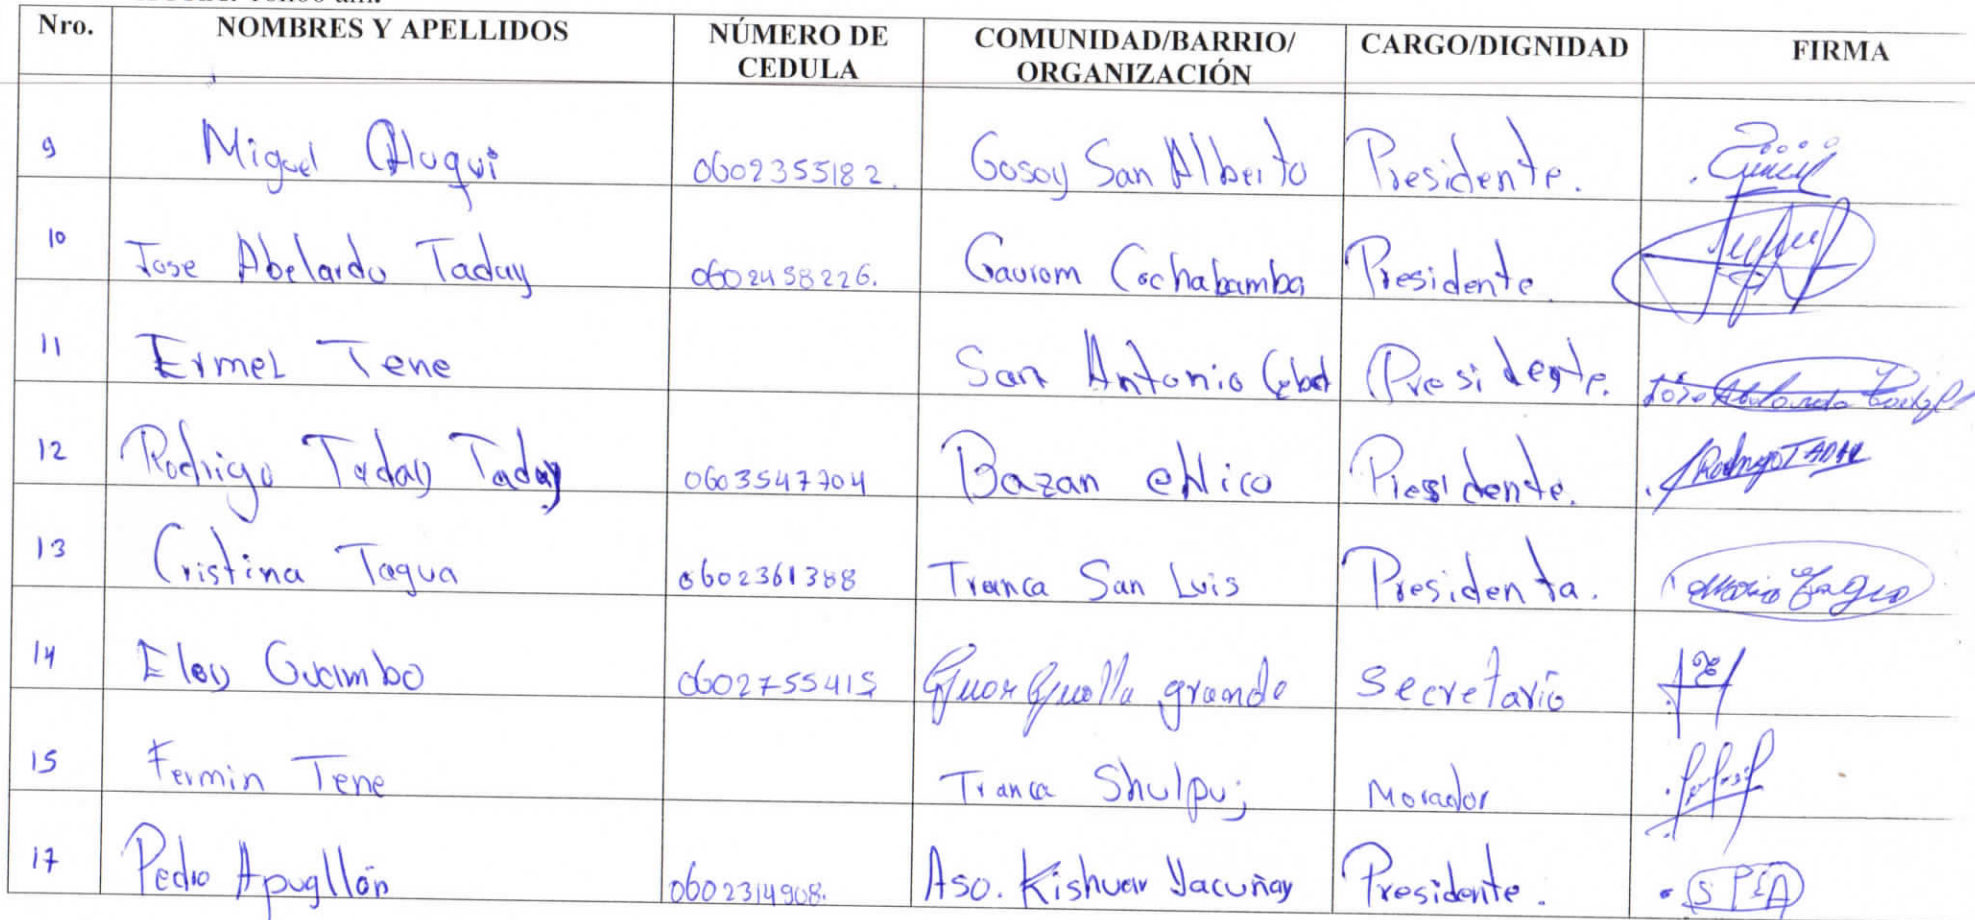 Nro. NOMBRES Y APELLIDOS NÚMERO DE CEDULA COMUNIDAD/BARRIO/ORGANIZACIÓN CARGO/DIGNIDAD FIRMA
9 Miguel 0602355182. Gosoy San Alberto Presidente.
10 Jose Abelardo Taday 0602458226. Gaurom Cochabamba Presidente.
11 Ermel Tene San Antonio Presidente.
12 Rodrigo Taday Taday 0603547704 Bazan Presidente. Rodrigo TADAY
13 Cristina Tagua 0602361388 Tranca San Luis Presidenta.
14 Eloy Guambo 0602755415 grande Secretario
15 Fermin Tene Tranca Shulpuj Morador
17 Pedro Apugllón 0602314908. Aso. Kishuar Yacuñay Presidente.